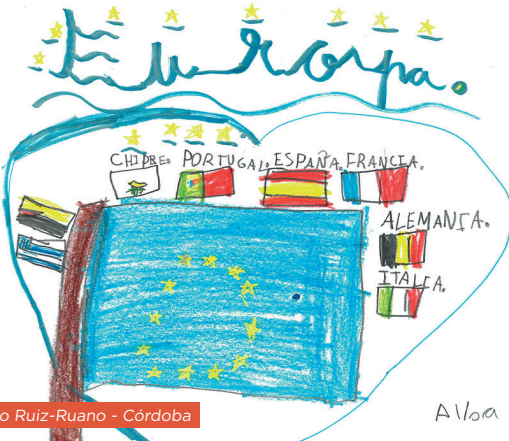 Europa.
CHIPRE. PORTUGAL. ESPAÑA. FRANCIA.
ALEMANIA.
ITALIA.
o Ruiz-Ruano - Córdoba
Alba